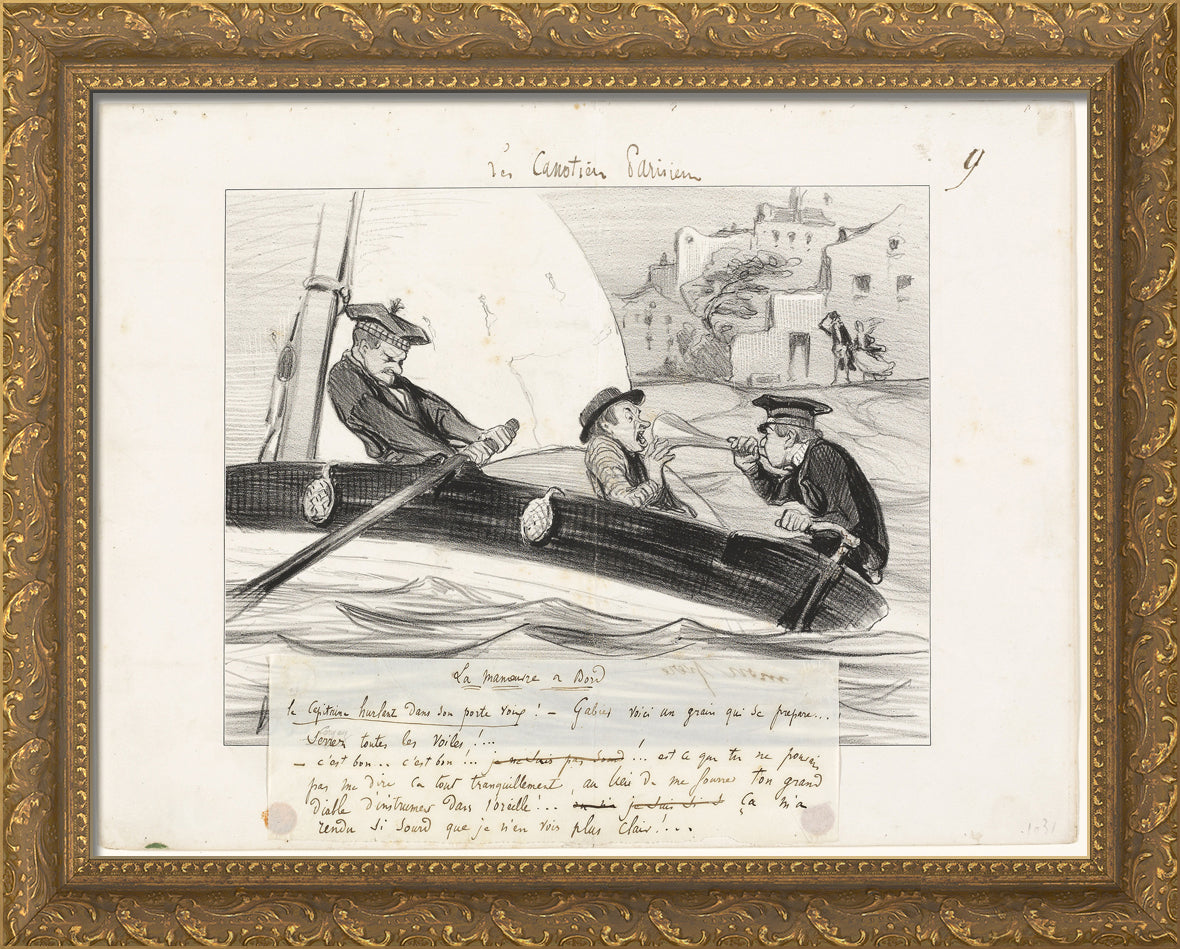 Les Canotiers Parisiens
9
La manœuvre a Bord
le Capitaine hurlant dans son porte voix ! – Gabier voici un grain qui se prépare...
Serrez toutes les voiles !...
– c'est bon .. c'est bon !... je ne suis pas sourd ! ... est ce que tu ne pouvais
pas me dire ça tout tranquillement, au lieu de me fourrer ton grand
Diable d'instrument dans l'oreille !... je suis si Ça m'a
rendu si sourd que je n'en vois plus clair !...
1031